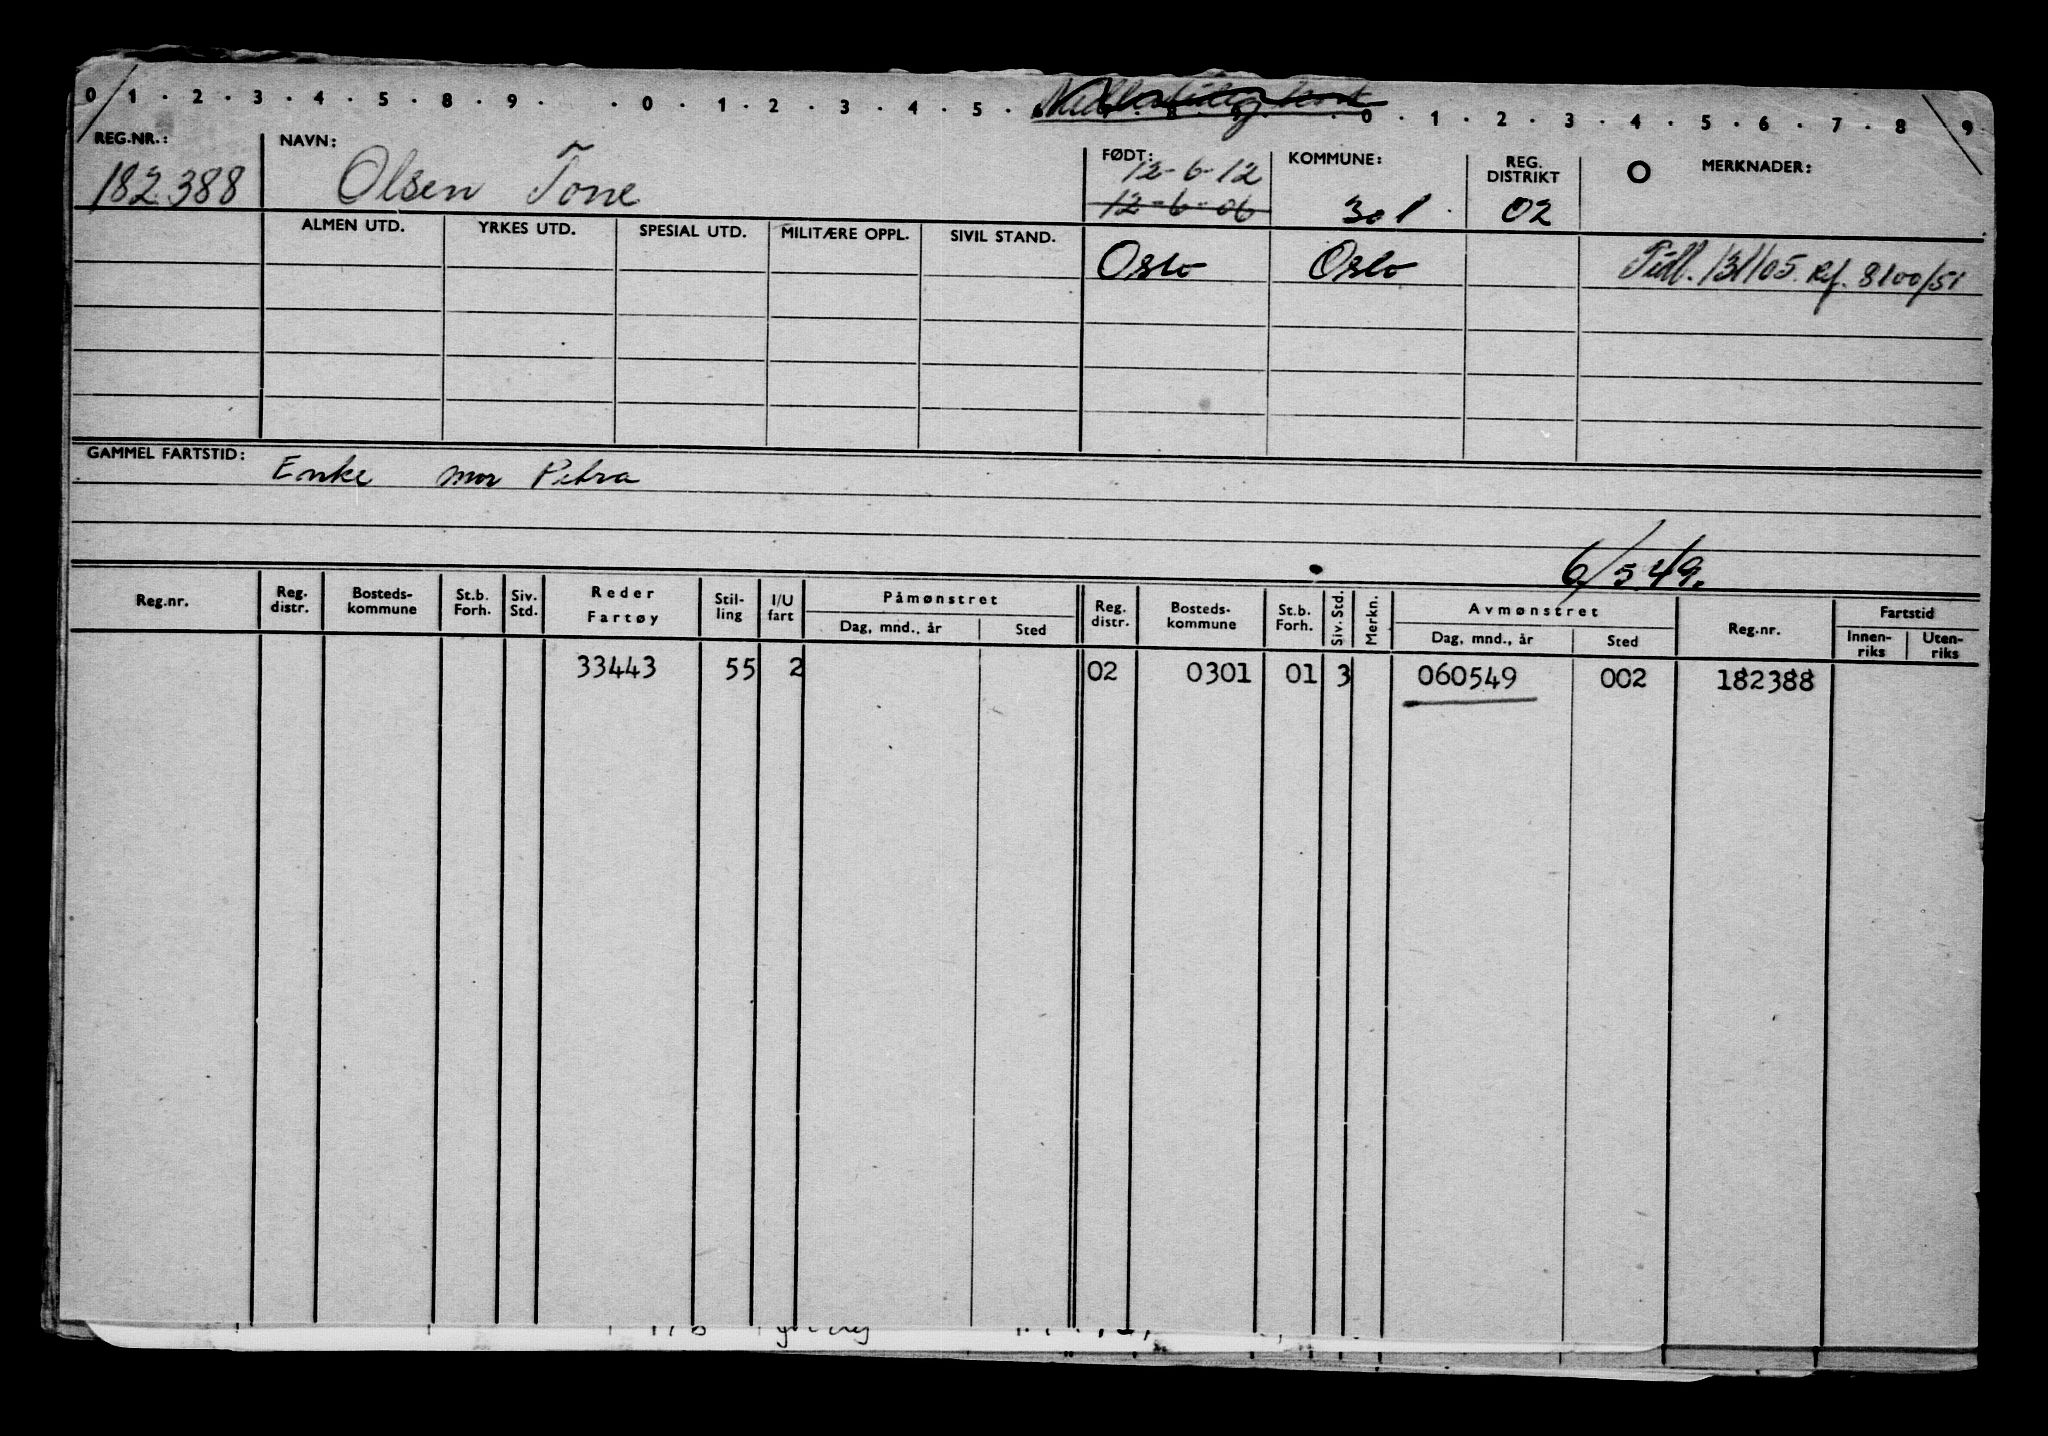 0 1 . 2 . 3 . 4 . 5 . 8 . 9 . . 0 . 1 . 2 . 3 . 4 . 5 . . 0 . 1 . 2 . 3 . 4 . 5 . 6 . 7 . 8 9
REG.NR.: NAVN: FØDT: KOMMUNE: REG. DISTRIKT O MERKNADER:
182388 Olsen Tone 12-6-12
12-6-06 301 02
ALMEN UTD. YRKES UTD. SPESIAL UTD. MILITÆRE OPPL. SIVIL STAND.
Oslo Oslo Tidl. 131105. Rf. 8100/51
GAMMEL FARTSTID: Enke mor Petra
6/5 49.
Reg.nr. Reg. distr. Bosteds-kommune St.b. Forh. Siv. Std. Reder Fartøy Stil-ling I/U fart Påmønstret Reg. distr. Bosteds-kommune St.b. Forh. Siv. Std. Merkn. Avmønstret Reg.nr. Fartstid
Dag, mnd., år Sted Dag, mnd., år Sted Innen-riks Uten-riks
33443 55 2 02 0301 01 3 060549 002 182388